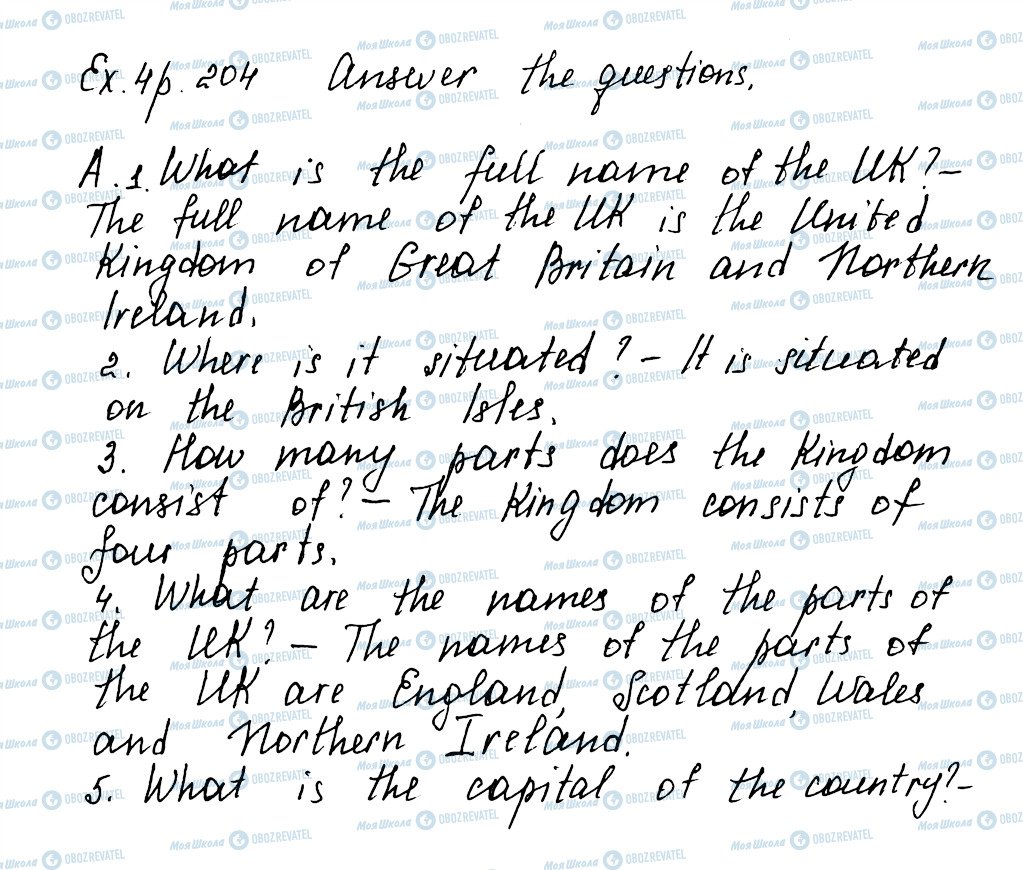 Ex. 4 p. 204 Answer the questions.
A. 1. What is the full name of the UK? –
The full name of the UK is the United
Kingdom of Great Britain and Northern
Ireland.
2. Where is it situated? – It is situated
on the British Isles.
3. How many parts does the Kingdom
consist of? – The Kingdom consists of
four parts.
4. What are the names of the parts of
the UK? – The names of the parts of
the UK are England, Scotland, Wales
and Northern Ireland.
5. What is the capital of the country? –